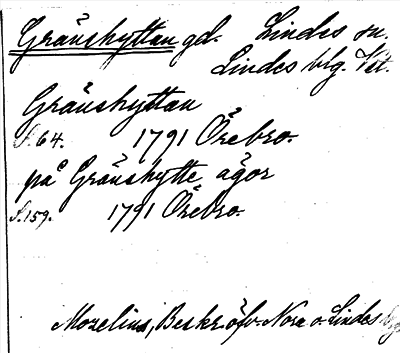 Gränshyttan gd. Lindes sn.
Lindes blg. Vst.
Gränshyttan
S. 64. 1791 Örebro.
på Gränshytte ägor
S. 159. 1791 Örebro.
Mozelius, Beskr. öfv. Nora o. Lindes